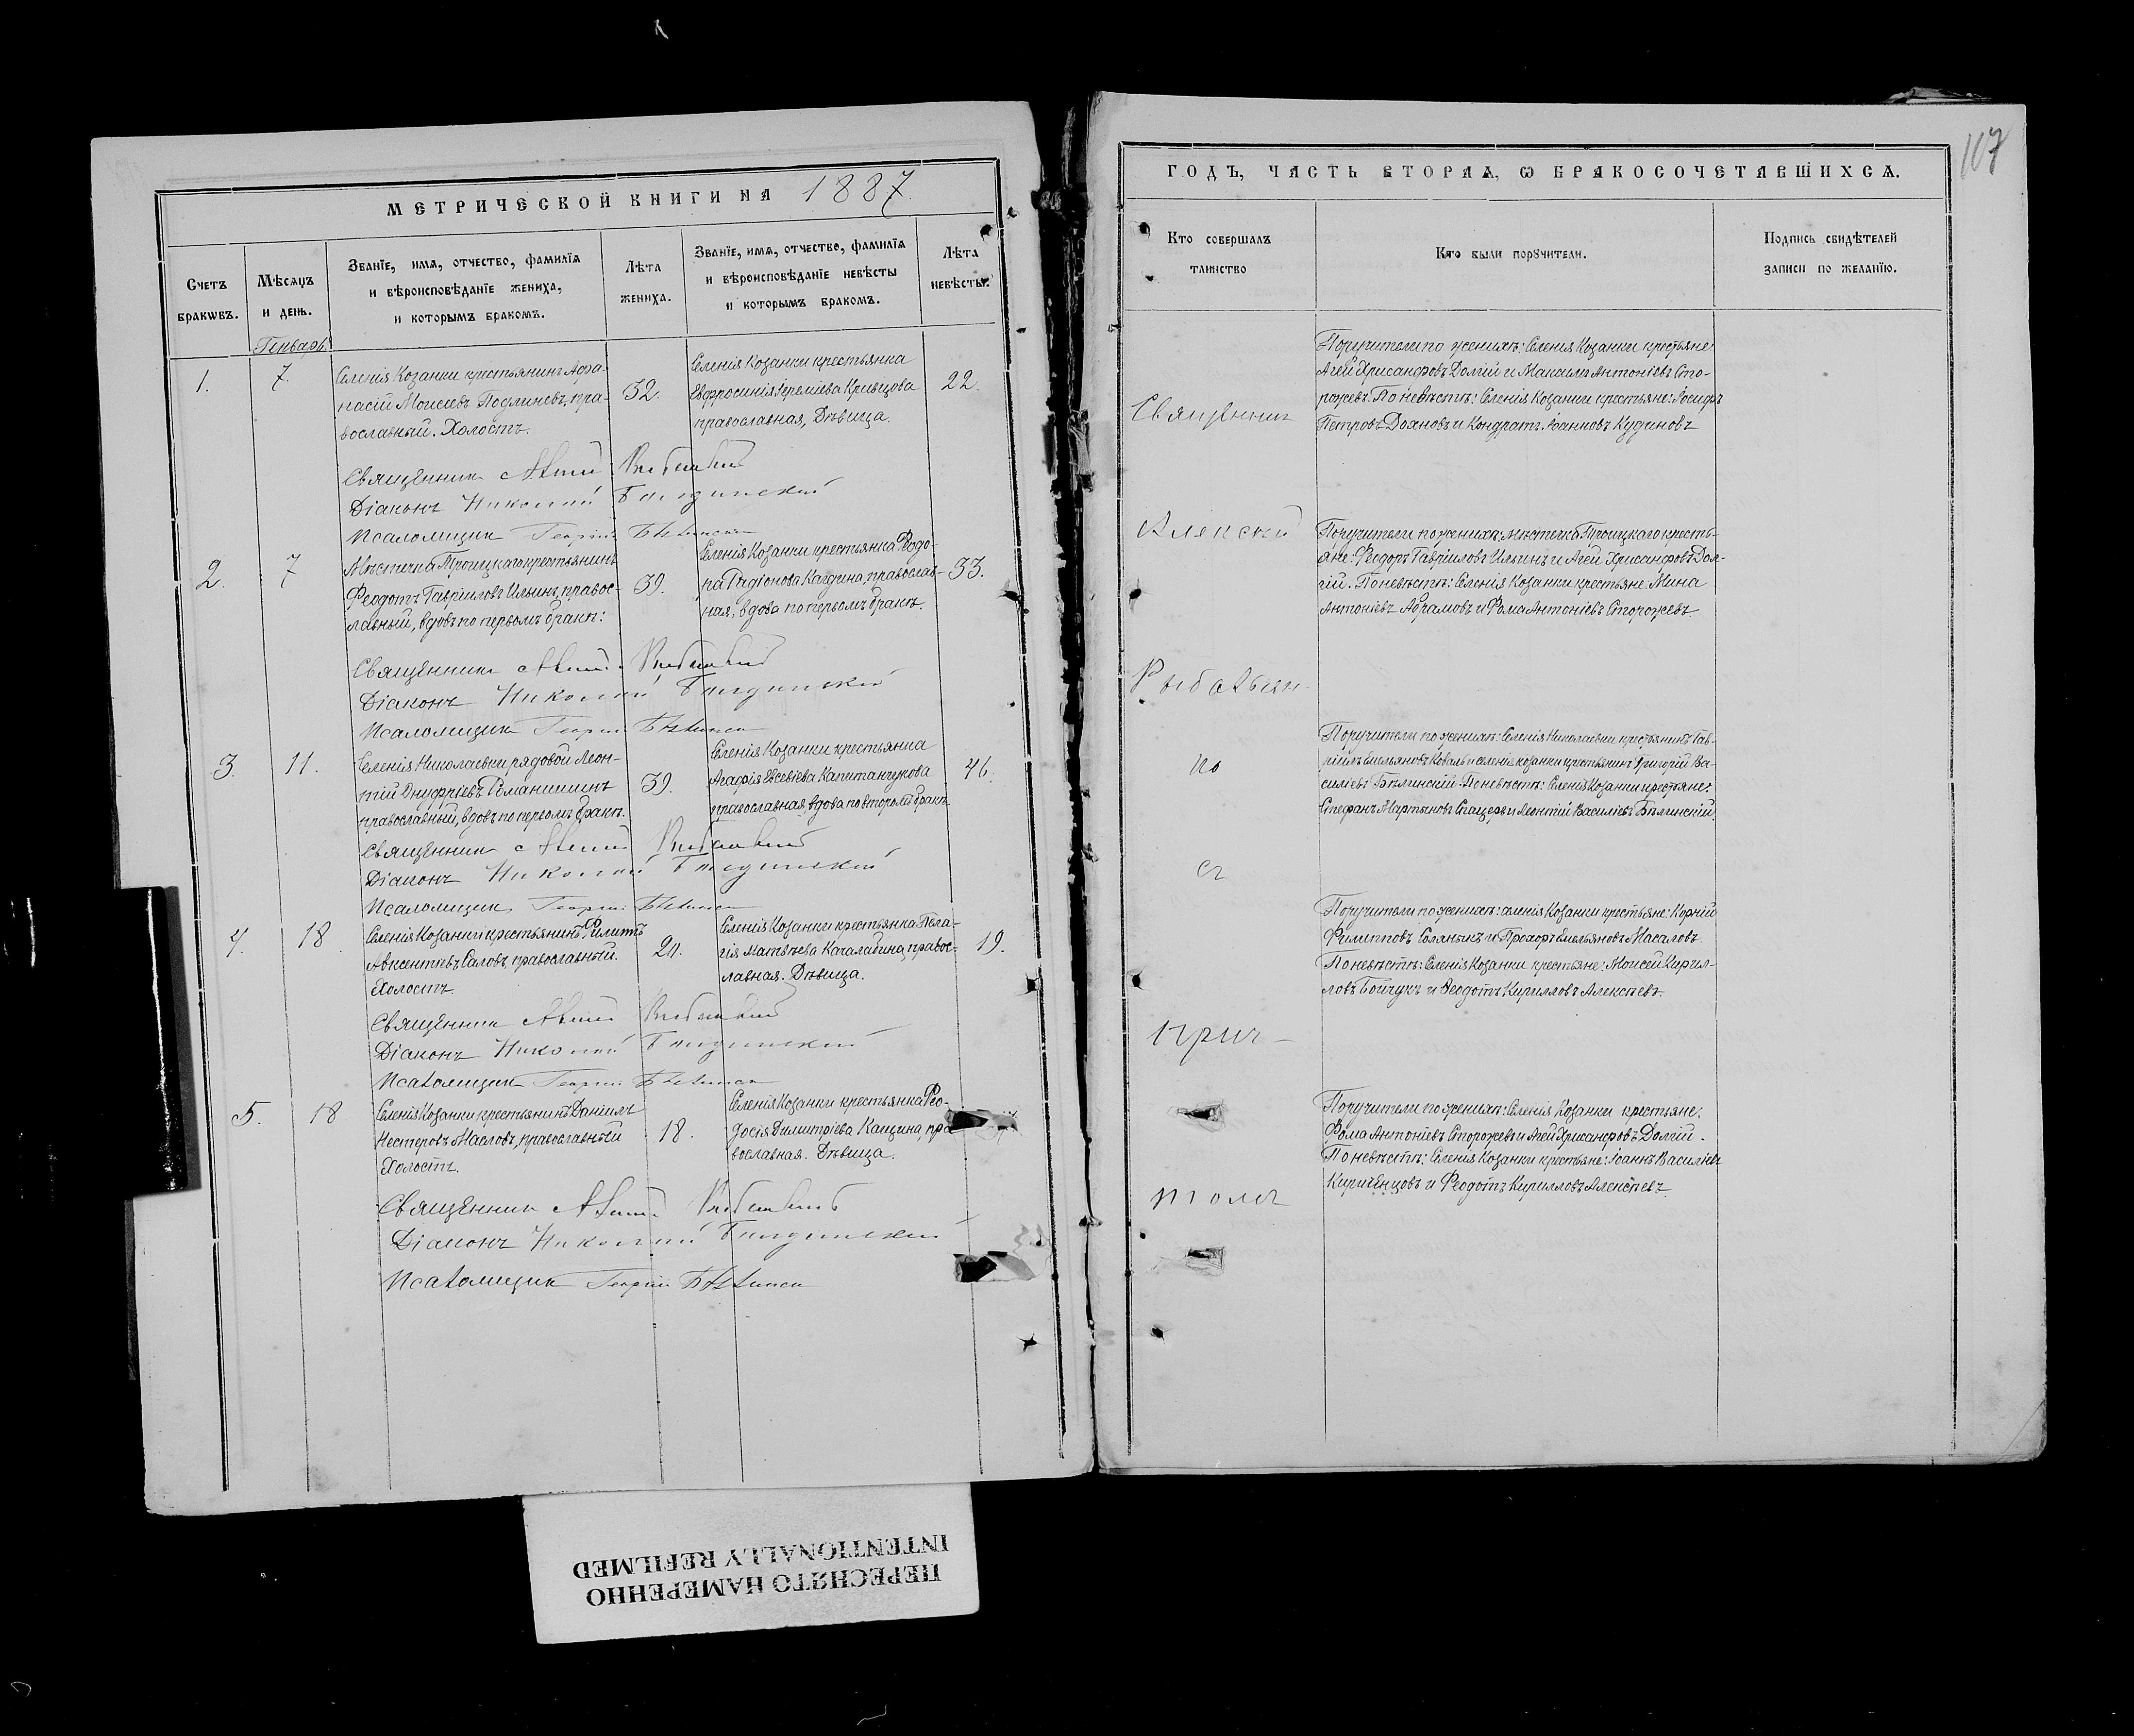 МЕТРИЧЕСКОЙ КНИГИ НА 1887
Счетъ браковъ.
Мѣсяцъ и день.
Званіе, имя, отчество, фамилія
и вѣроисповѣданіе жениха,
и которымъ бракомъ.
Лѣта
жениха.
Званіе, имя, отчество, фамилія
и вѣроисповѣданіе невѣсты
и которымъ бракомъ.
Лѣта
невѣсты.
Генварь.
1.
7.
Селенія Козанки крестьянинъ Афа-
насій Моисеевъ Подлиневъ, пра-
вославный. Холостъ.
32.
Селенія Козанки крестьянка
Евфросинія Іереміева Кривцова
православная, Дѣвица.
22.
Священникъ
Діаконъ Николай
Псаломщикъ Георгій
2.
7
Мѣстечка Троицкаго крестьянинъ
Феодотъ Гавріиловъ Ильинъ, правос-
лавный, вдовъ по первомъ бракѣ.
39.
Селенія Козанки крестьянка Феодо-
ра Радіонова Кащина, православ-
ная, вдова по первомъ бракѣ.
33.
Священникъ
Діаконъ Николай
Псаломщикъ Георгій
3.
11.
Селенія Николаевки рядовой Леон-
тій Онуфріевъ Романишинъ
православный, вдовъ по первомъ бракѣ.
39.
Селенія Козанки крестьянка
Агафія Евсевіева Капитанчукова
православная, вдова по второмъ бракѣ.
46.
Священникъ
Діаконъ Николай
Псаломщикъ Георгій
4.
18.
Селенія Козанки крестьянинъ Филиппъ
Авксентіевъ Саловъ, православный.
Холостъ.
21.
Селенія Козанки крестьянка Пела-
гія Матвѣева Качалабина, правос-
лавная. Дѣвица.
19.
Священникъ
Діаконъ Николай
Псаломщикъ Георгій
5.
18
Селенія Козанки крестьянинъ Даніилъ
Нестеровъ Масловъ, православный
Холостъ.
18.
Селенія Козанки крестьянка Фео-
досія Димитріева Кащина, пра-
вославная. Дѣвица.
Священникъ
Діаконъ Николай
Псаломщикъ Георгій
107
ГОДЪ, ЧАСТЬ ВТОРАЯ, Ѡ БРАКОСОЧЕТАВШИХСЯ.
Кто совершалъ
таинство
Кто были поручители.
Подпись свидѣтелей
записи по желанію.
Священникъ
Алексей
но
съ
прич-
томъ
Поручители по женихѣ: Селенія Козанки крестьяне:
Агей Хрисанфовъ Долгій и Максимъ Антоніевъ Сто-
рожевъ. По невѣстѣ: Селенія Козанки крестьяне: Іосифъ
Петровъ Дояновъ и Кондратъ Іоанновъ Кудиновъ
Поручители по женихѣ: мѣстечка Троицкаго кресть-
яне: Феодоръ Гавріиловъ Ильинъ и Агей Хрисанфовъ Дол-
гій. По невѣстѣ: Селенія Козанки крестьяне: Мина
Антоніевъ Абрамовъ и Фома Антоніевъ Сторожевъ.
Поручители по женихѣ: Селенія Николаевки крестьянинъ Гав-
ріилъ Емельяновъ Коваль и селенія Козанки крестьянинъ Григорій Ва-
силіевъ Бѣлинскій. По невѣстѣ: Селенія Козанки крестьяне:
Стефанъ Мартыновъ Стацеръ и Леонтій Василіевъ Бѣлинскій.
Поручители по женихѣ: селенія Козанки крестьяне: Корній
Филипповъ Солякъ и Прохоръ Емельяновъ Масаловъ
По невѣстѣ: Селенія Козанки крестьяне: Моисей Кирил-
ловъ Бойчукъ и Феодотъ Кирилловъ Алексѣевъ.
Поручители по женихѣ: Селенія Козанки крестьяне:
Фома Антоніевъ Сторожевъ и Агей Хрисанфовъ Долгій.
По невѣстѣ: Селенія Козанки крестьяне: Іоаннъ Василіевъ
Кириченцовъ и Феодотъ Кирилловъ Алексѣевъ.
ПЕРЕСНЯТО НАМЕРЕННО
INTENTIONALLY REFILMED